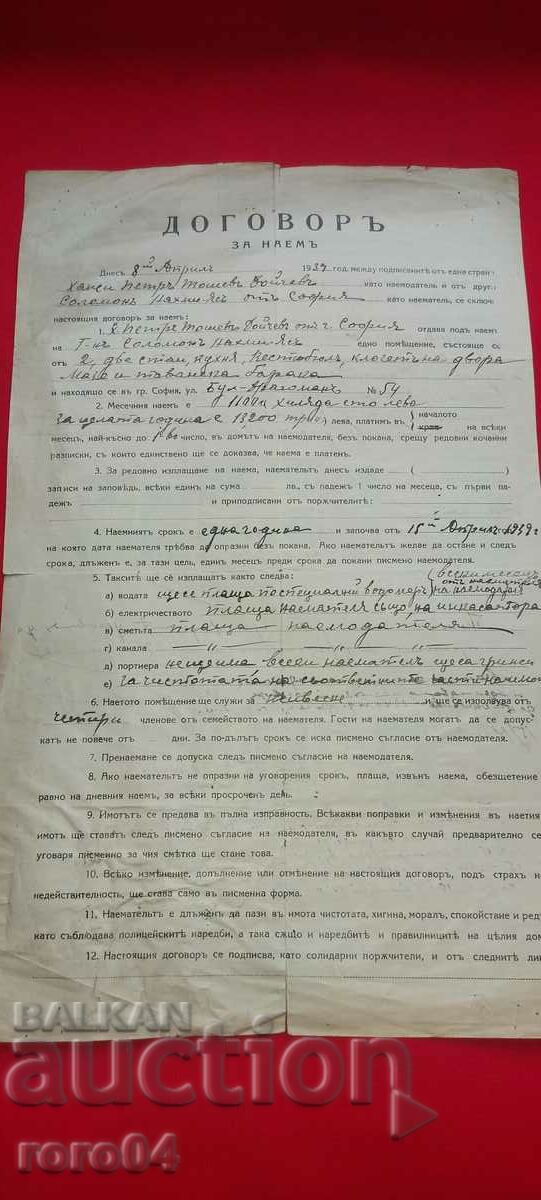 ДОГОВОРЪ
ЗА НАЕМЪ
Днесъ 8й Априлъ 1939 год. между подписанитѣ отъ една стран
Петръ Тошевъ Бойчевъ като наемодатель и отъ друг
Соломонъ Нахмиясъ отъ София като наематель, се склю
настоящия договоръ за наемъ:
1. Петръ Тошевъ Бойчевъ от г. София отдава подъ наем
на Г-нъ Соломонъ Нахмиясъ едно помѣщение, състояще с
отъ 2 две стаи, кухня, вестибюлъ, клозетъ на двора
Маза и таванска
и находящо се въ гр. София, ул. Бул. Драгоманъ № 54
2. Месечния наемъ е 1100 хиляда сто лева
За целата година е 13,200 лева, платим въ началото
края на всѣки
месецъ, най-късно до 1во число, въ домътъ на наемодателя, безъ покана, срещу редовни кочанни
разписки, съ които единствено ще се доказва, че наема е платенъ.
3. За редовно изплащане на наема, наемательтъ днесъ издаде
записи на заповѣдь, всѣки единъ на сума лв., съ падежъ 1 число на месеца, съ първи па
дежъ и приподписани отъ поржчителитѣ:
4. Наемниятъ срокъ е една година и започва отъ 15 Априлъ 1939 г.
на която дата наемателя трѣбва да опразни безъ покана. Ако наемательтъ желае да остане и след
срока, длъженъ е, за тази цель, единъ месецъ преди срока да покани писмено наемодателя.
5. Таксите ще се изплащатъ както следва:
а) водата щесе плаща по специални водомеръ
б) електричеството плаща наемателя също на инкасатора
в) сметьта плаща наемодателя
г) канала " "
д) портиера неидима всеки наемателъ щесе грижи
е) за чистотата на съответните части
6. Наетото помѣщение ще служи за и ще се използува отъ
четири членове отъ семейството на наемателя. Гости на наемателя могатъ да се допус-
катъ не повече отъ дни. За по-дългъ срокъ се иска писмено съгласие отъ наемодателя.
7. Пренаемане се допуска следъ писмено съгласие на наемодателя.
8. Ако наемательтъ не опразни на уговорения срокъ, плаща, извънъ наема, обезщетение
равно на дневния наемъ, за всѣки просроченъ день.
9. Имотътъ се предава въ пълна изправность. Всѣкакви поправки и измѣнения въ наетия
имотъ ще ставатъ следъ писмено съгласие на наемодателя, въ какъвто случай предварително се
уговаря писменно за чия смѣтка ще стане това.
10. Всѣко измѣнение, допълнение или отмѣнение на настоящия договоръ, подъ страхъ н
недействительность, ще става само въ писменна форма.
11. Наемательтъ е длъженъ да пази въ имота чистотата, хигина, моралъ, спокойстане и ред
като съблюдава полицейскитѣ наредби, а така сжщо и наредбитѣ и правилницитѣ на цѣлия дом
12. Настоящия договоръ се подписва, като солидарни поржчители, и отъ следнитѣ ли
BALKAN
auction
roro04